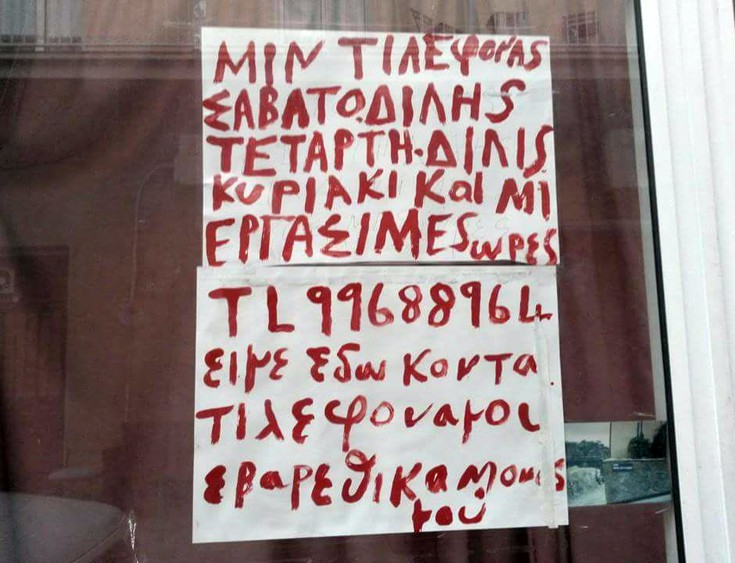 ΜΙΝ ΤΙΛΕφΟΝΑS
ΣΑΒΑΤΟ.ΔΙΛΗS
ΤΕΤΑΡΤΗ.ΔΙΛΙS
ΚυΡΙΑΚΙ Και ΜΙ
ΕΡΓΑΣΙΜΕS ωΡΕS
TL 99688964
ειμε εδω κοντα
τιλεφοναμοι
εβαρεθικα μονοs
μου